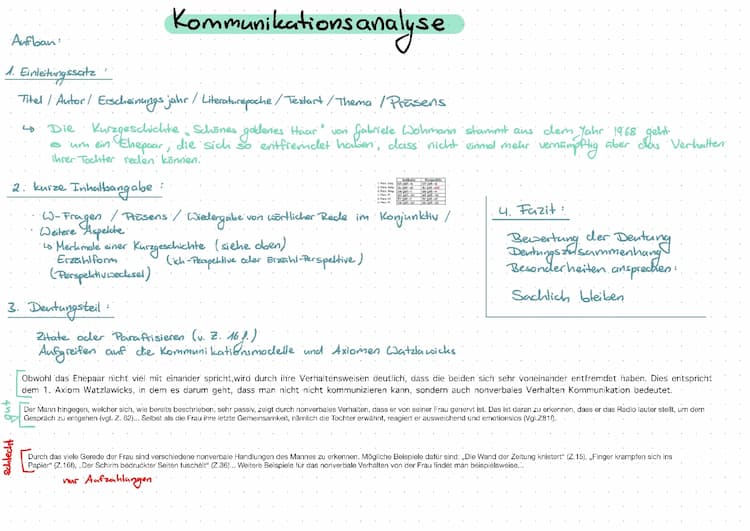 Kommunikationsanalyse
Aufbau:
1. Einleitungssatz:
Titel / Autor / Erscheinungsjahr / Literaturepoche / Textart / Thema / Präsens
↳ Die Kurzgeschichte „Schönes goldenes Haar" von Gabriele Wohmann stammt aus dem Jahr 1968 geht
um ein Ehepaar, die sich so entfremdet haben, dass nicht einmal mehr vernünftig über das Verhalten
ihrer Tochter reden können.
2. kurze Inhaltsangabe:
· W-Fragen / Präsens / Wiedergabe von wörtlicher Rede im Konjunktiv /
· Weitere Aspekte
↳ Merkmale einer Kurzgeschichte (siehe oben)
Erzählform (Ich-Perspektive oder Erzähl-Perspektive)
(Perspektivwechsel)
3. Deutungsteil:
Zitate oder Parafrisieren (v. Z. 16 f.)
Aufgreifen auf die Kommunikationsmodelle und Axiomen Watzlawicks
4. Fazit:
Bewertung der Deutung
Deutungszusammenhang
Besonderheiten ansprechen:
Sachlich bleiben
Obwohl das Ehepaar nicht viel mit einander spricht,wird durch ihre Verhaltensweisen deutlich, dass die beiden sich sehr voneinander entfremdet haben. Dies entspricht
dem 1. Axiom Watzlawicks, in dem es darum geht, dass man nicht nicht kommunizieren kann, sondern auch nonverbales Verhalten Kommunikation bedeutet.
gut
Der Mann hingegen, welcher sich, wie bereits beschrieben, sehr passiv, zeigt durch nonverbales Verhalten, dass er von seiner Frau genervt ist. Das ist daran zu erkennen, dass er das Radio lauter stellt, um dem
Gespräch zu entgehen (vgl. Z. 62)... Selbst als die Frau ihre letzte Gemeinsamkeit, nämlich die Tochter erwähnt, reagiert er ausweichend und emotionslos (Vgl.Z81f).
schlecht
Durch das viele Gerede der Frau sind verschiedene nonverbale Handlungen des Mannes zu erkennen. Mögliche Beispiele dafür sind: „Die Wand der Zeitung knistert" (Z.15), „Finger krampfen sich ins
Papier" (Z.16f), „Der Schirm bedruckter Seiten tuschelt" (Z.36)... Weitere Beispiele für das nonverbale Verhalten von der Frau findet man beispielsweise...
nur Aufzählungen